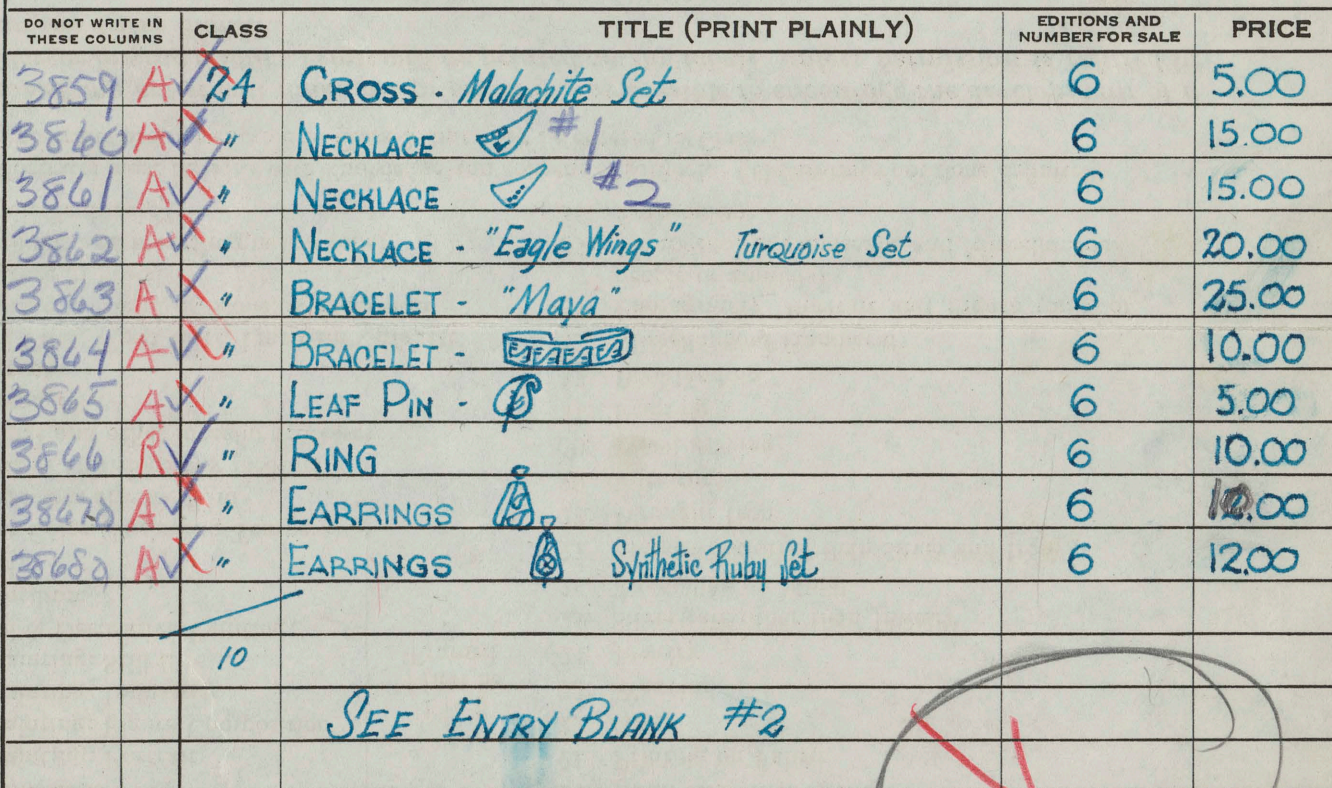 DO NOT WRITE IN THESE COLUMNS CLASS TITLE (PRINT PLAINLY) EDITIONS AND NUMBER FOR SALE PRICE
3859 A 24 CROSS - Malachite Set 6 5.00
3860 A " NECKLACE #1 6 15.00
3861 A " NECKLACE #2 6 15.00
3862 A " NECKLACE - "Eagle Wings" Turquoise Set 6 20.00
3863 A " BRACELET - "Maya" 6 25.00
3864 A " BRACELET - 6 10.00
3865 A " LEAF PIN - 6 5.00
3866 R " RING 6 10.00
A " EARRINGS 6
A " EARRINGS Synthetic Ruby Set 6 12.00
10
SEE ENTRY BLANK #2